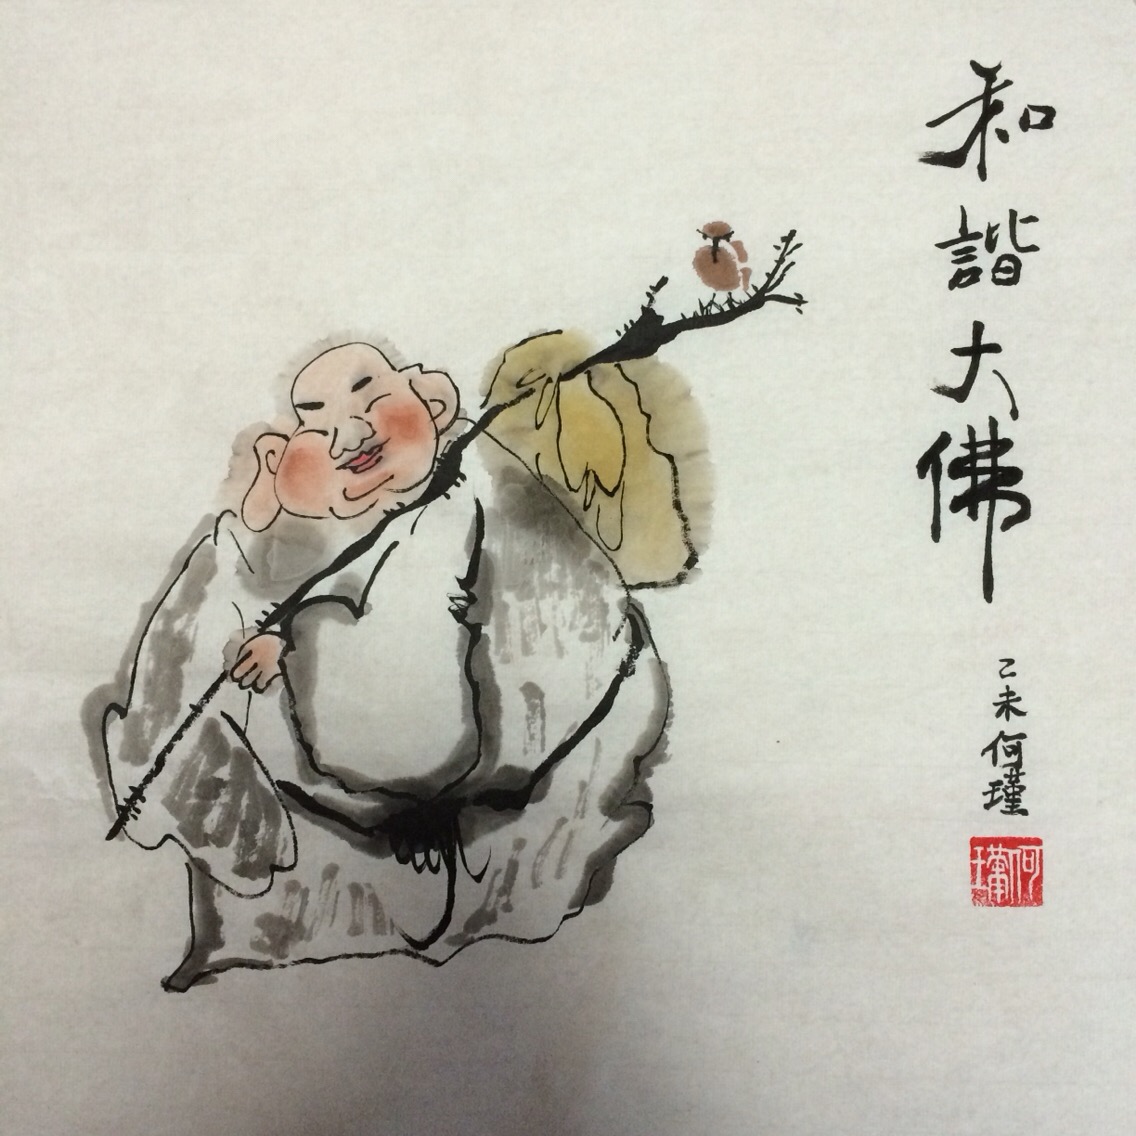 和諧大佛
乙未何瑾
何瑾